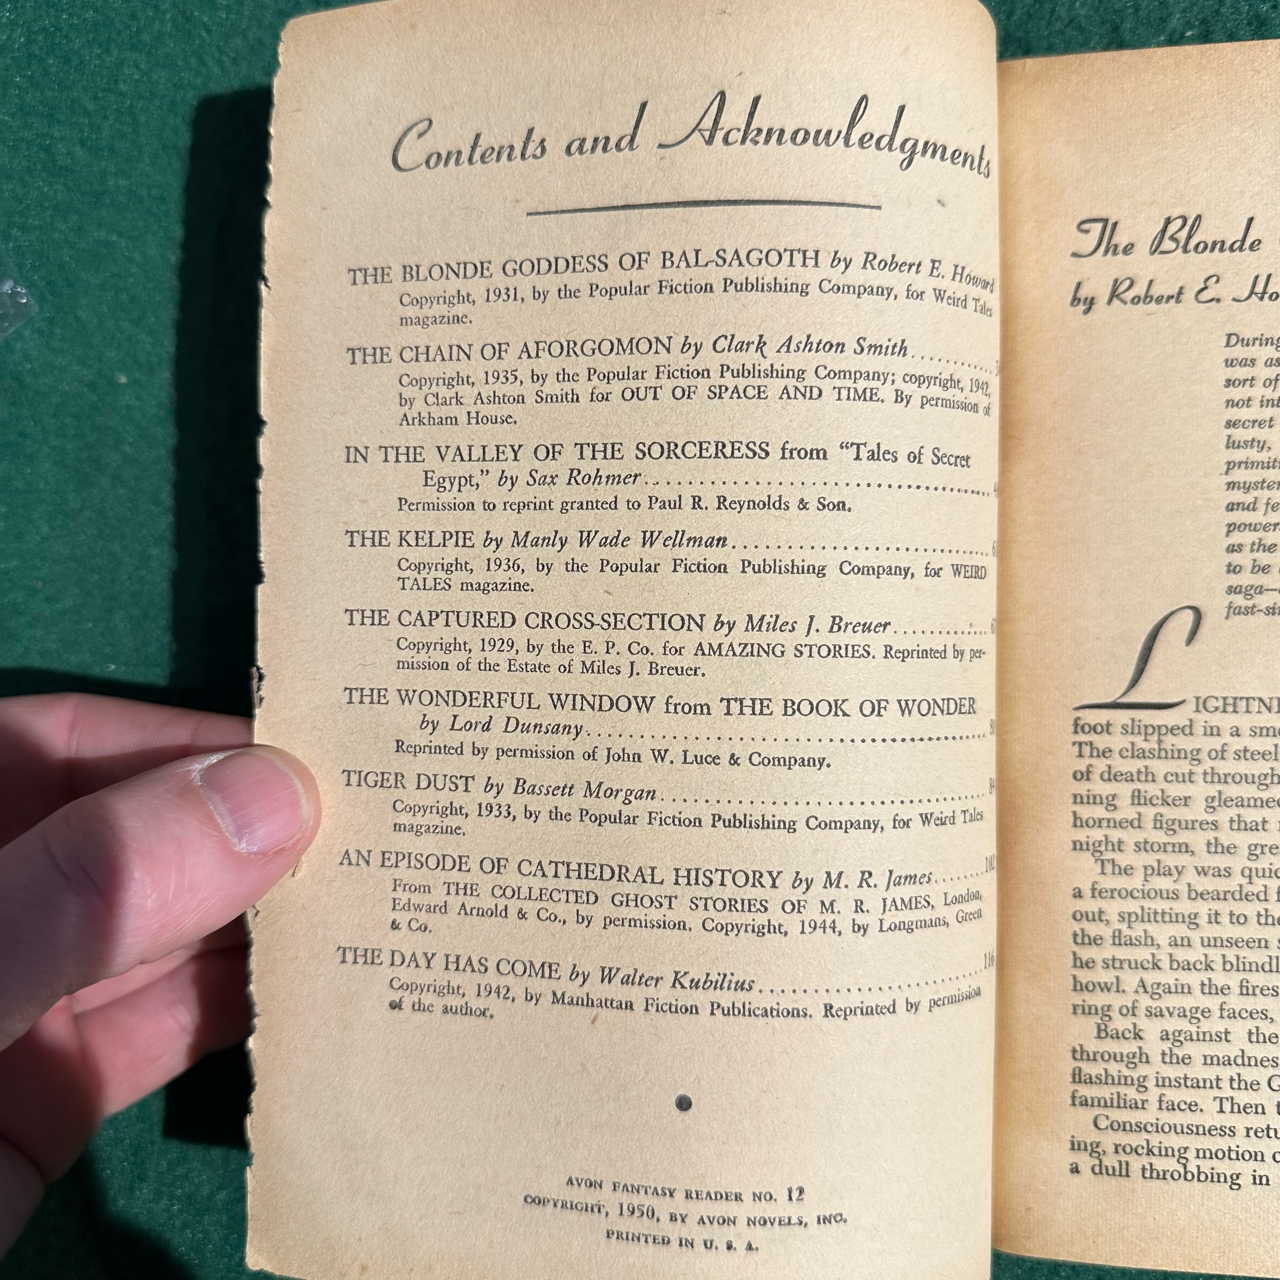 Contents and Acknowledgments
THE BLONDE GODDESS OF BAL-SAGOTH by Robert E. Howard
Copyright, 1931, by the Popular Fiction Publishing Company, for Weird Tales
magazine.
THE CHAIN OF AFORGOMON by Clark Ashton Smith..........
Copyright, 1935, by the Popular Fiction Publishing Company; copyright, 1942,
by Clark Ashton Smith for OUT OF SPACE AND TIME. By permission of
Arkham House.
IN THE VALLEY OF THE SORCERESS from "Tales of Secret
Egypt," by Sax Rohmer..............................
Permission to reprint granted to Paul R. Reynolds & Son.
THE KELPIE by Manly Wade Wellman......................
Copyright, 1936, by the Popular Fiction Publishing Company, for WEIRD
TALES magazine.
THE CAPTURED CROSS-SECTION by Miles J. Breuer..........
Copyright, 1929, by the E. P. Co. for AMAZING STORIES. Reprinted by per-
mission of the Estate of Miles J. Breuer.
THE WONDERFUL WINDOW from THE BOOK OF WONDER
by Lord Dunsany....................................
Reprinted by permission of John W. Luce & Company.
TIGER DUST by Bassett Morgan..............................
Copyright, 1933, by the Popular Fiction Publishing Company, for Weird Tales
magazine.
AN EPISODE OF CATHEDRAL HISTORY by M. R. James......102
From THE COLLECTED GHOST STORIES OF M. R. JAMES, London,
Edward Arnold & Co., by permission. Copyright, 1944, by Longmans, Green
& Co.
THE DAY HAS COME by Walter Kubilius....................116
Copyright, 1942, by Manhattan Fiction Publications. Reprinted by permission
of the author.
AVON FANTASY READER NO. 12
COPYRIGHT, 1950, BY AVON NOVELS, INC.
PRINTED IN U. S. A.
The Blonde
by Robert E. Ho
During
was as
sort of
not int
secret
lusty,
primiti
myster
and fe
power.
as the
to be
saga—
fast-si
LIGHTNI
foot slipped in a smo
The clashing of steel
of death cut through
ning flicker gleamed
horned figures that
night storm, the gre
The play was quic
a ferocious bearded f
out, splitting it to the
the flash, an unseen s
he struck back blindl
howl. Again the fires
ring of savage faces,
Back against the
through the madness
flashing instant the G
familiar face. Then t
Consciousness retu
ing, rocking motion o
a dull throbbing in